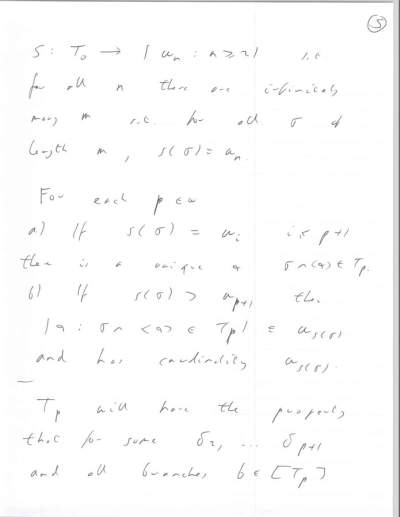 5
S : T₀ → { ωₙ : n ≥ 2 } s.t
for all n there are infinitely
many m s.t. for all σ of
length m, s(σ) = ωₙ
For each p ∈ ω
a) If s(σ) = ωᵢ i ≤ p+1
there is a unique a σ⌢⟨a⟩ ∈ Tₚ.
b) If s(σ) > ωₚ₊₁ then
{ a : σ⌢<a> ∈ Tₚ } ⊆ ω_{s(σ)}
and has cardinality ω_{s(σ)}.
Tₚ will have the property
that for some δ₂, ... δₚ₊₁
and all branches b ∈ [Tₚ]